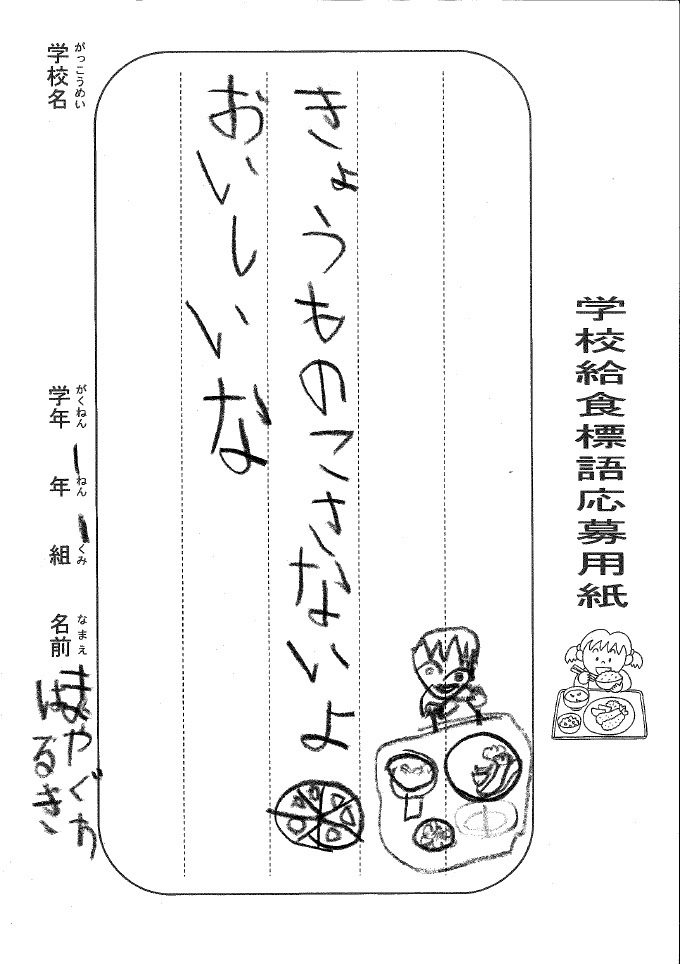 学校給食標語応募用紙
きょうものこさないよ
おいしいな
がっこうめい
学校名
がくねん ねん くみ なまえ
学年 1年 1組 名前
はるき